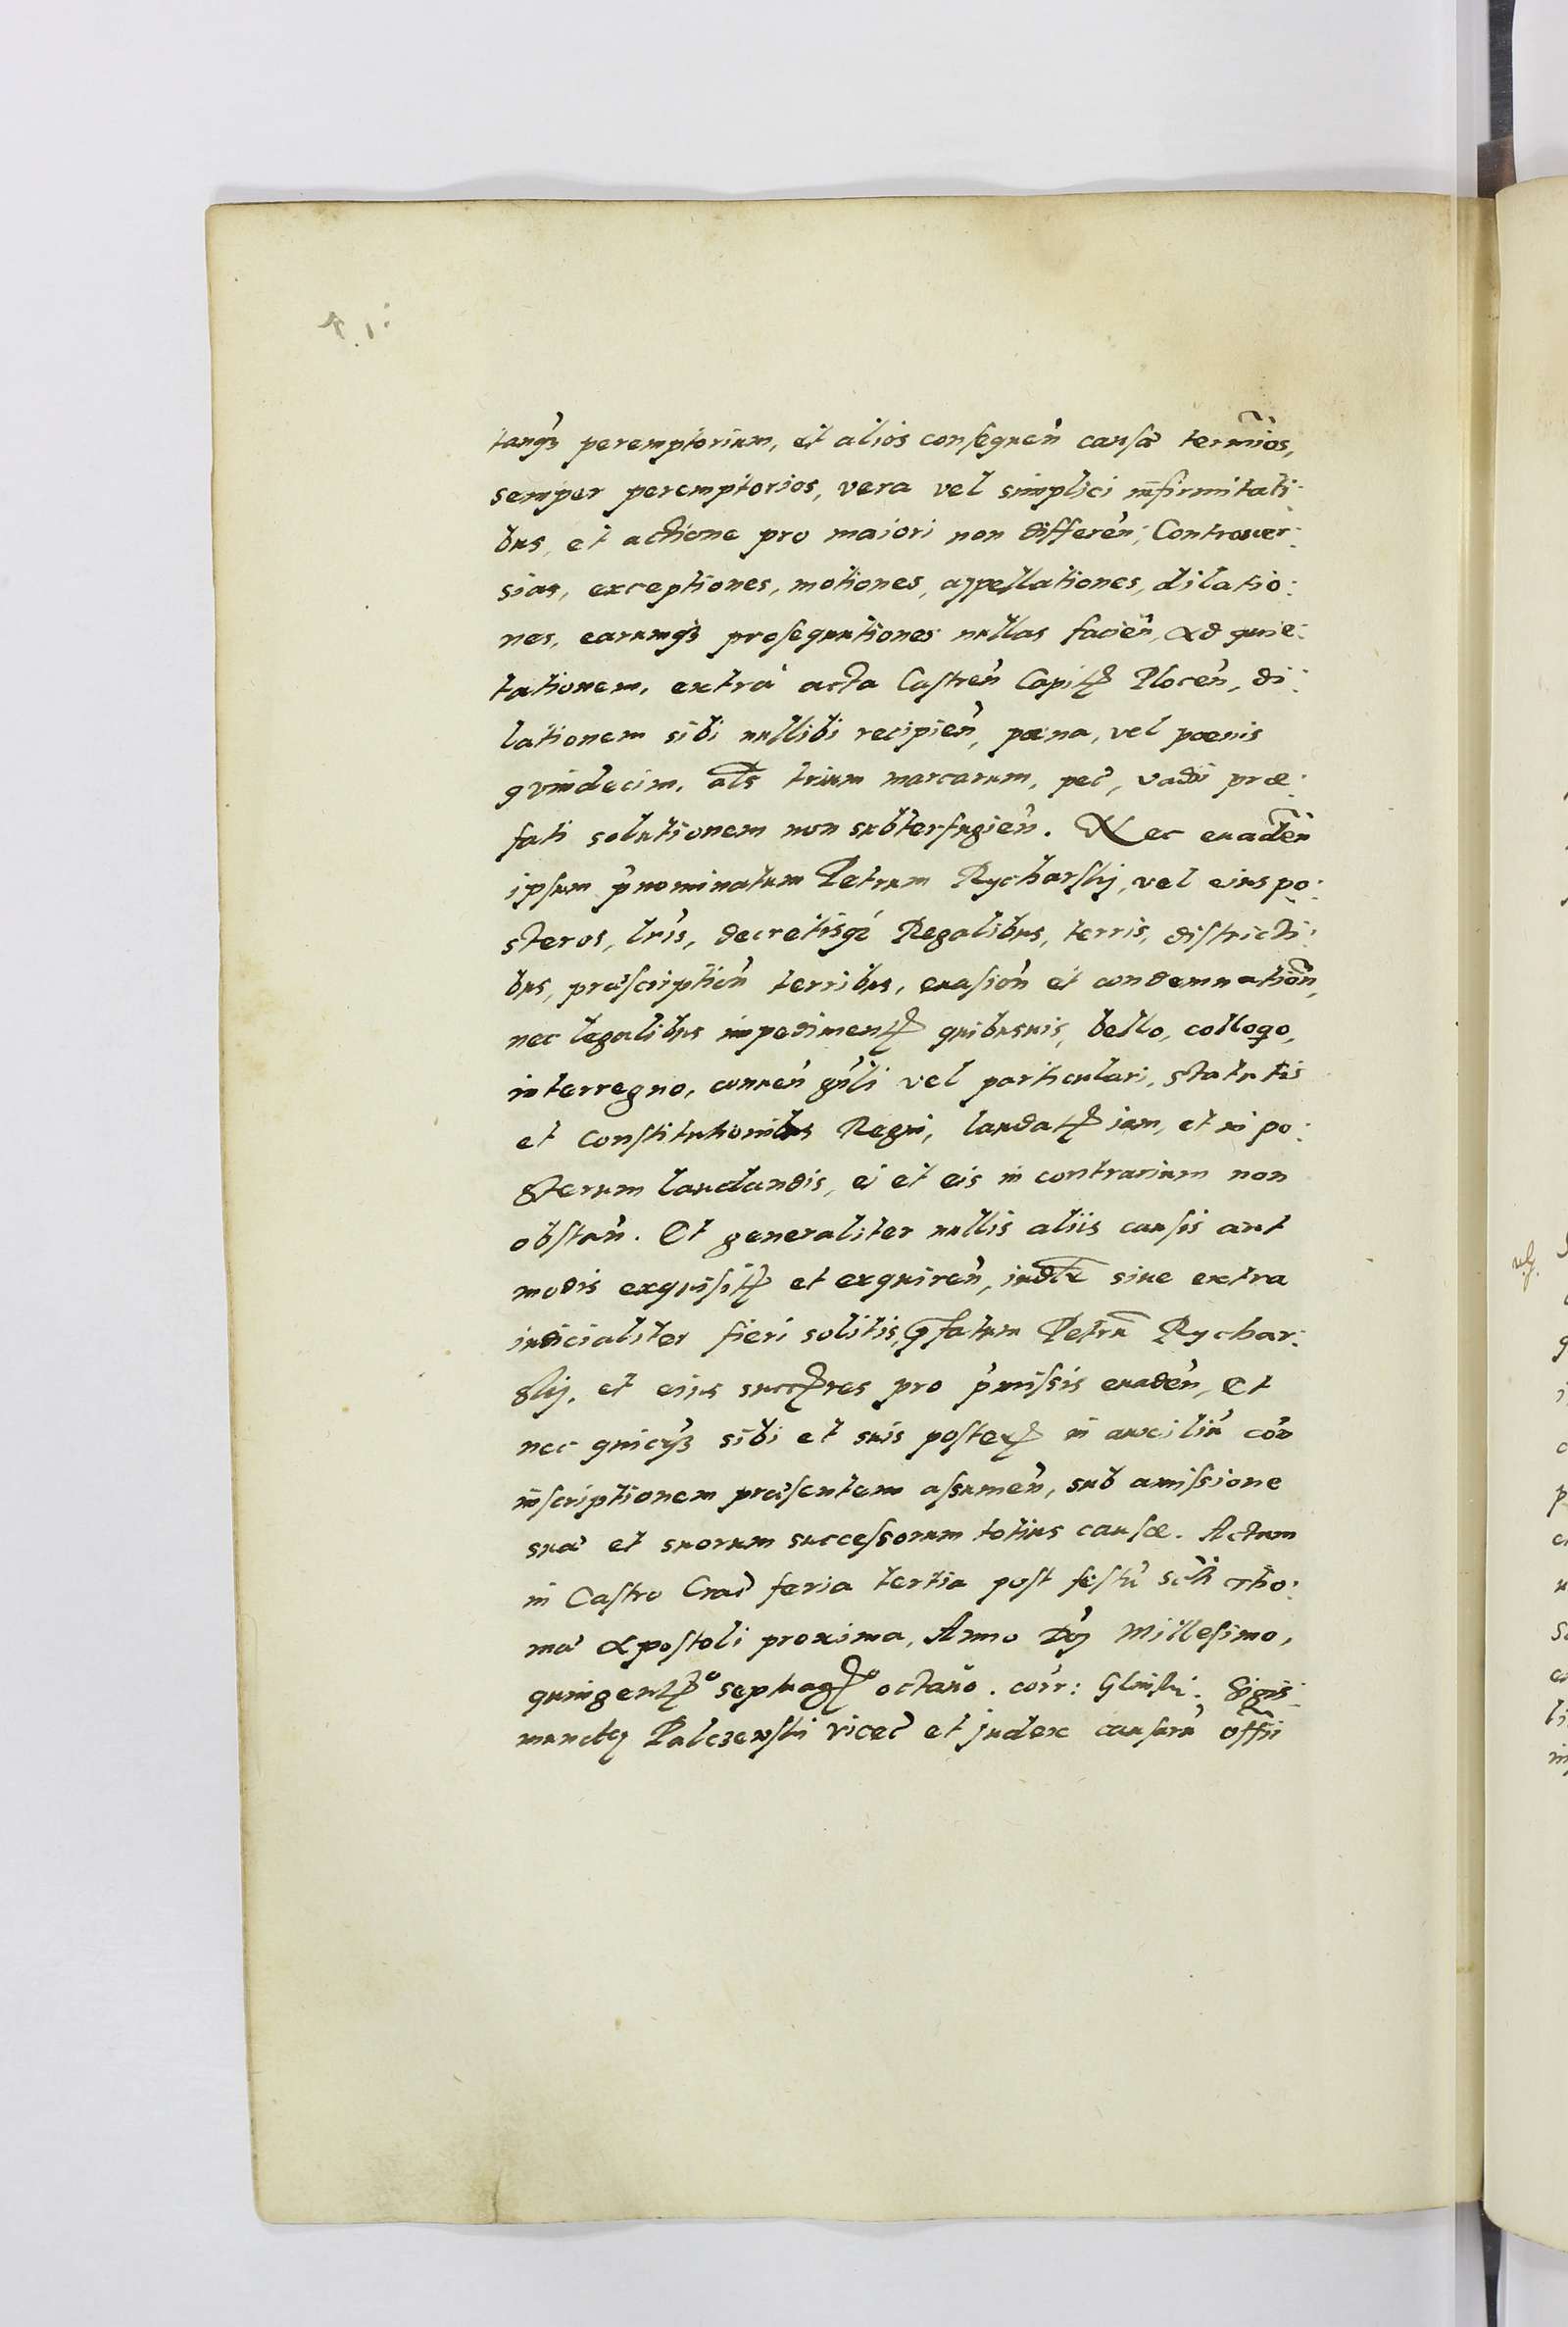 tanqȝ peremptorium, et alios consequeñ causæ termios,
semper peremptorios, vera vel simplici infirmitati:
bus, et actione pro maiori non differeñ, Controuer:
sias, exceptiones, motiones, appellationes, dilatio:
nes, earumqȝ prosequutiones nullas facieñ, Ad quie:
tationem, extrà acta Castreñ Capitꝭ Ploceñ, di:
lationem sibi nullibi recipieñ, pæna, vel pœnis
quindecim, als trium marcarum, pec̃, vadii præ:
fati solutionem non subterfugieñ. Nec euadeñ
ipsum p̃nominatum Petrum Rycharskj, vel eius po:
steros, lr̃is, decretisq̃ Regalibus, terris, districti:
bus, præscriptioñ terribus, euasioñ et condemnatioñ,
nec legalibus impedimentꝭ quibusuis, bello, colloqo,
interregno, conueñ gñli vel particulari, statutis
et Constitutionibus Regni, laudatꝭ iam, et in po:
sterum laudandis, ei et eis in contrarium non
obstañ. Et generaliter nullis aliis causis aut
modis exquisitꝭ et exquireñ, iudlr siue extra
iudicialiter fieri solitis, p̃fatum Petrũ Rychar:
skij, et eius succꝭres pro p̃missis euadeñ, Et
nec quicqȝ sibi et suis posterꝭ in auxiliũ coñ
inscriptionem præsentem assumeñ, sub amissione
suæ et suorum successorum totius causæ. Actum
in Castro Crac̃ feria tertia post festũ scti Tho:
mæ Apostoli proxima, Anno Dnj Millesimo,
quingentꝭo septuagꝭo octauo. corr: Glinski. Sigis:
mundꝰ Palczewski viceĉ et judex causarũ offii